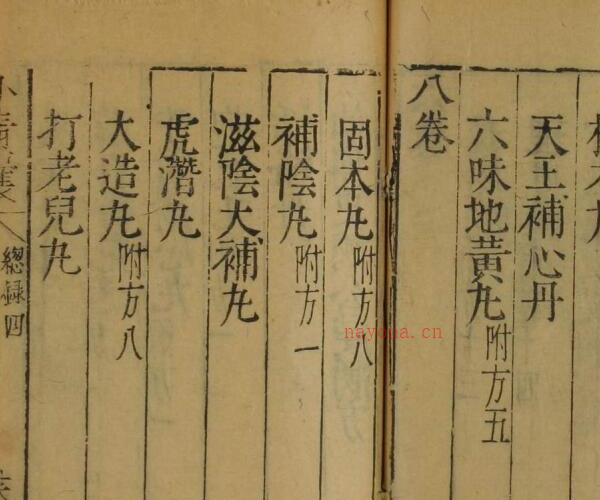 天王補心丹
六味地黃丸附方五
八卷
固本丸附方八
補陰丸附方一
滋陰大補丸
虎潛丸
大造丸附方八
打老兒丸
小青囊
總録四
nayona.cn